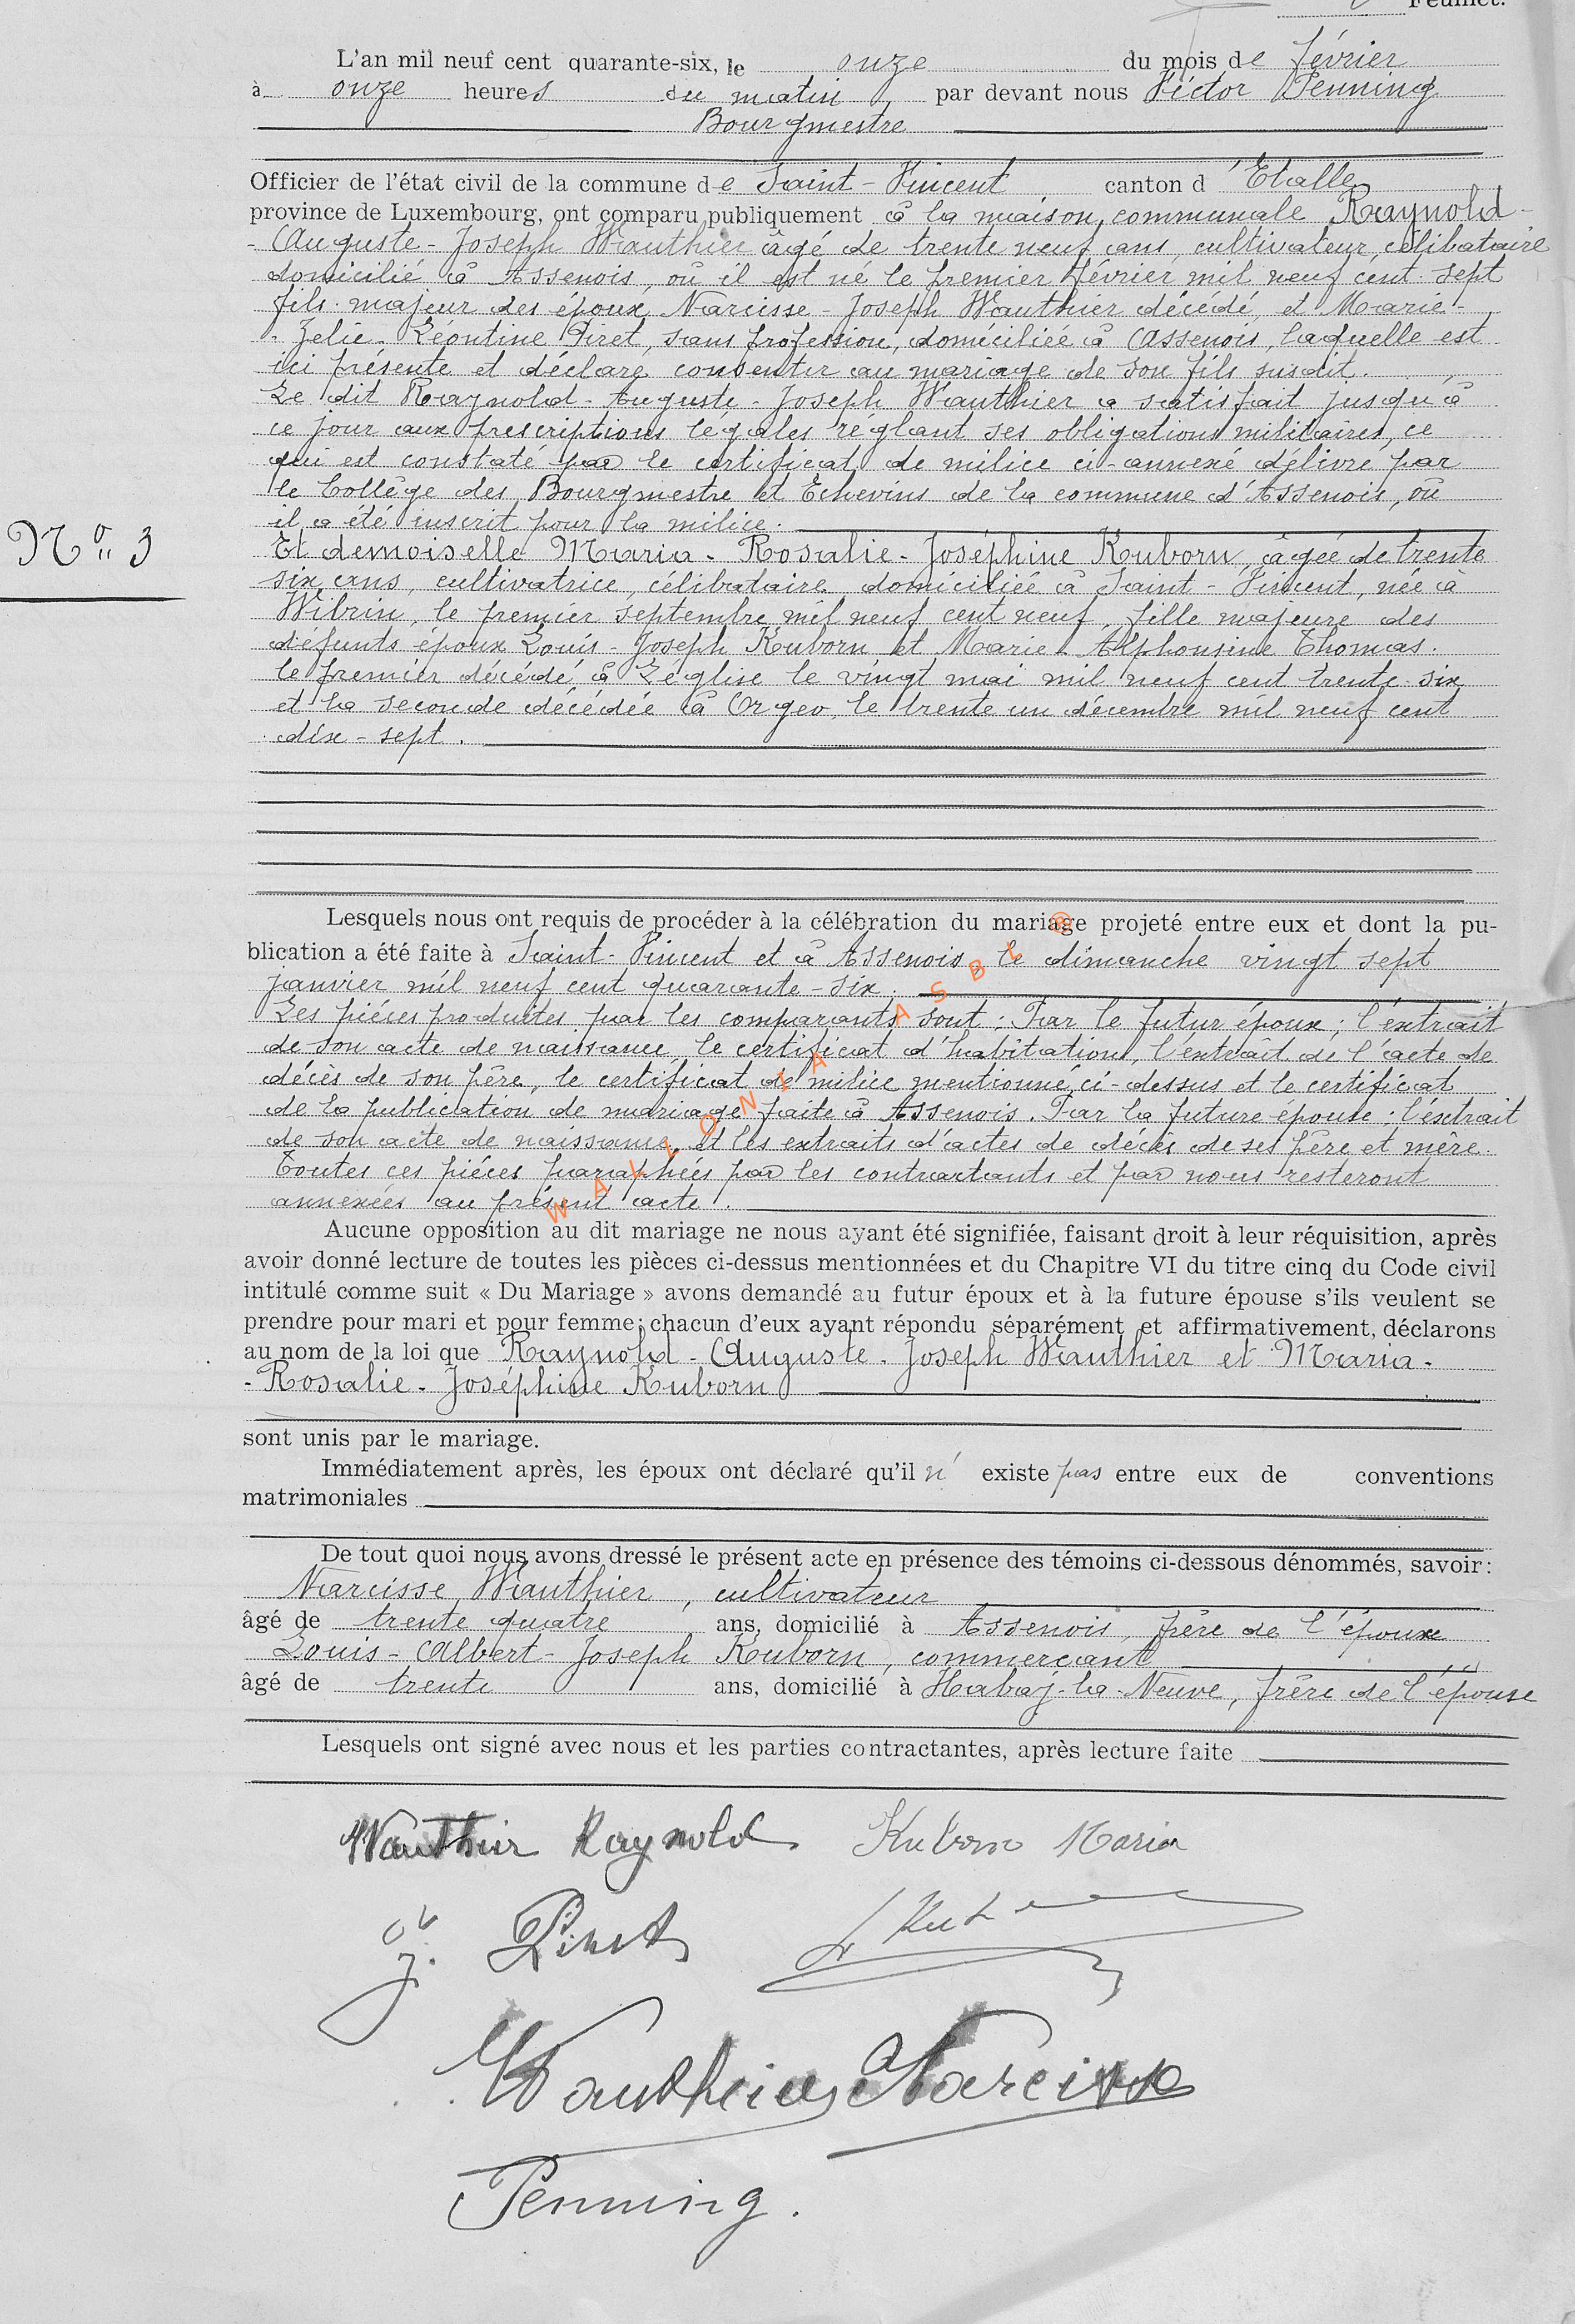 Feuillet.
L'an mil neuf cent quarante-six, le onze du mois de février
à onze heures du matin par devant nous Victor Penning
Bourgmestre
Officier de l'état civil de la commune de Saint-Vincent canton d'Etalle
province de Luxembourg, ont comparu publiquement à la maison communale Raynold-
- Auguste - Joseph Wauthier âgé de trente neuf ans, cultivateur, célibataire
domicilié à Assenois, où il est né le premier février mil neuf cent sept
fils majeur des époux Narcisse - Joseph Wauthier décédé, et Marie -
- Zelie - Léontine Piret, sans profession, domiciliée à Assenois, laquelle est
ici présente et déclare consentir au mariage de son fils susdit.
Le dit Raynold - Auguste - Joseph Wauthier a satisfait jusqu'à
ce jour aux prescriptions légales réglant ses obligations militaires, ce
qui est constaté par le certificat de milice ci-annexé délivré par
le Collège des Bourgmestre et Echevins de la commune d'Assenois, où
il a été inscrit pour la milice.
N° 3
Et demoiselle Maria - Rosalie - Joséphine Kuborn, âgée de trente
six ans, cultivatrice, célibataire, domiciliée à Saint - Vincent, née à
Wibrin, le premier septembre mil neuf cent neuf, fille majeure des
défunts époux Louis - Joseph Kuborn et Marie - Alphonsine Thomas.
le premier décédé à Léglise le vingt mai mil neuf cent trente six
et la seconde décédée à Orgeo, le trente un décembre mil neuf cent
dix - sept.
Lesquels nous ont requis de procéder à la célébration du mariage projeté entre eux et dont la pu-
blication a été faite à Saint - Vincent et à Assenois, le dimanche vingt sept
janvier mil neuf cent quarante - six.
Les pièces produites par les comparants sont : Par le futur époux ; l'extrait
de son acte de naissance, le certificat d'habitation, l'extrait de l'acte de
décès de son père, le certificat de milice mentionné ci-dessus et le certificat
de la publication de mariage faite à Assenois. Par la future épouse : l'extrait
de son acte de naissance, et les extraits d'actes de décès de ses père et mère.
Toutes ces pièces paraphées par les contractants et par nous resteront
annexées au présent acte.
WALLONIA ASBL ®
Aucune opposition au dit mariage ne nous ayant été signifiée, faisant droit à leur réquisition, après
avoir donné lecture de toutes les pièces ci-dessus mentionnées et du Chapitre VI du titre cinq du Code civil
intitulé comme suit « Du Mariage » avons demandé au futur époux et à la future épouse s'ils veulent se
prendre pour mari et pour femme; chacun d'eux ayant répondu séparément et affirmativement, déclarons
au nom de la loi que Raynold - Auguste - Joseph Wauthier et Maria -
- Rosalie - Joséphine Kuborn
sont unis par le mariage.
Immédiatement après, les époux ont déclaré qu'il n' existe pas entre eux de conventions
matrimoniales
De tout quoi nous avons dressé le présent acte en présence des témoins ci-dessous dénommés, savoir:
Narcisse Wauthier, cultivateur
âgé de trente quatre ans, domicilié à Assenois, frère de l'époux
Louis - Albert - Joseph Kuborn, commerçant
âgé de trente ans, domicilié à Habay-la-Neuve, frère de l'épouse
Lesquels ont signé avec nous et les parties contractantes, après lecture faite
Wauthier Raynold Kuborn Maria
Piret
Wauthier Narcisse
Penning.